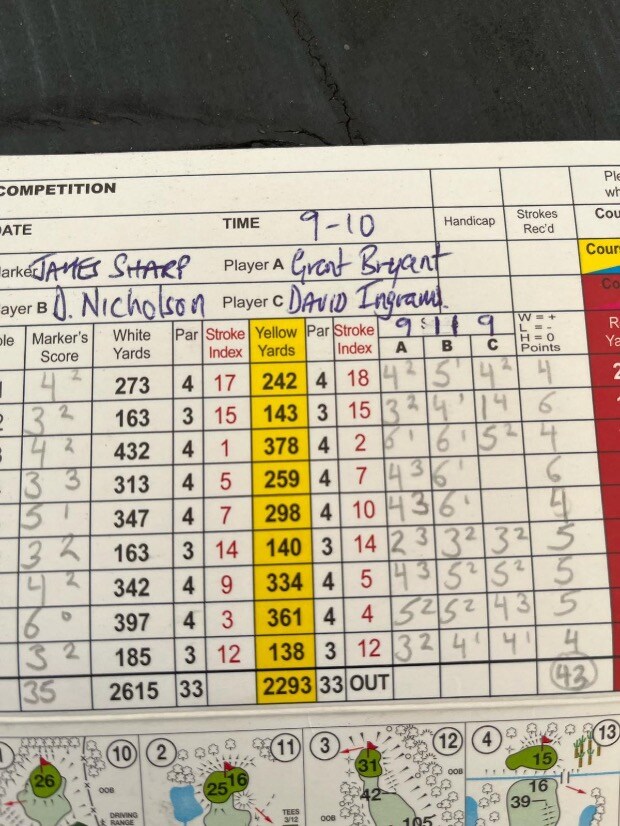 COMPETITION
ATE TIME 9-10 Handicap Strokes Rec'd
arker JAMES SHARP Player A Grant Bryant
ayer B D. Nicholson Player C DAVID Ingram.
ole Marker's Score White Yards Par Stroke Index Yellow Yards Par Stroke Index 9 11 9 A B C W = + L = - H = 0 Points
4 2 273 4 17 242 4 18 4 2 5 1 4 2 4
3 2 163 3 15 143 3 15 3 2 4 1 1 4 6
4 2 432 4 1 378 4 2 6 1 6 1 5 2 4
3 3 313 4 5 259 4 7 4 3 6 1 6
5 1 347 4 7 298 4 10 4 3 6 1 4
3 2 163 3 14 140 3 14 2 3 3 2 3 2 5
4 2 342 4 9 334 4 5 4 3 5 2 5 2 5
6 0 397 4 3 361 4 4 5 2 5 2 4 3 5
3 2 185 3 12 138 3 12 3 2 4 1 4 1 4
35 2615 33 2293 33 OUT 43
10 2 11 3 12 4 13
26 25 16 31 15
42 16
39
105
OOB OOB OOB
DRIVING RANGE
TEES 3/12